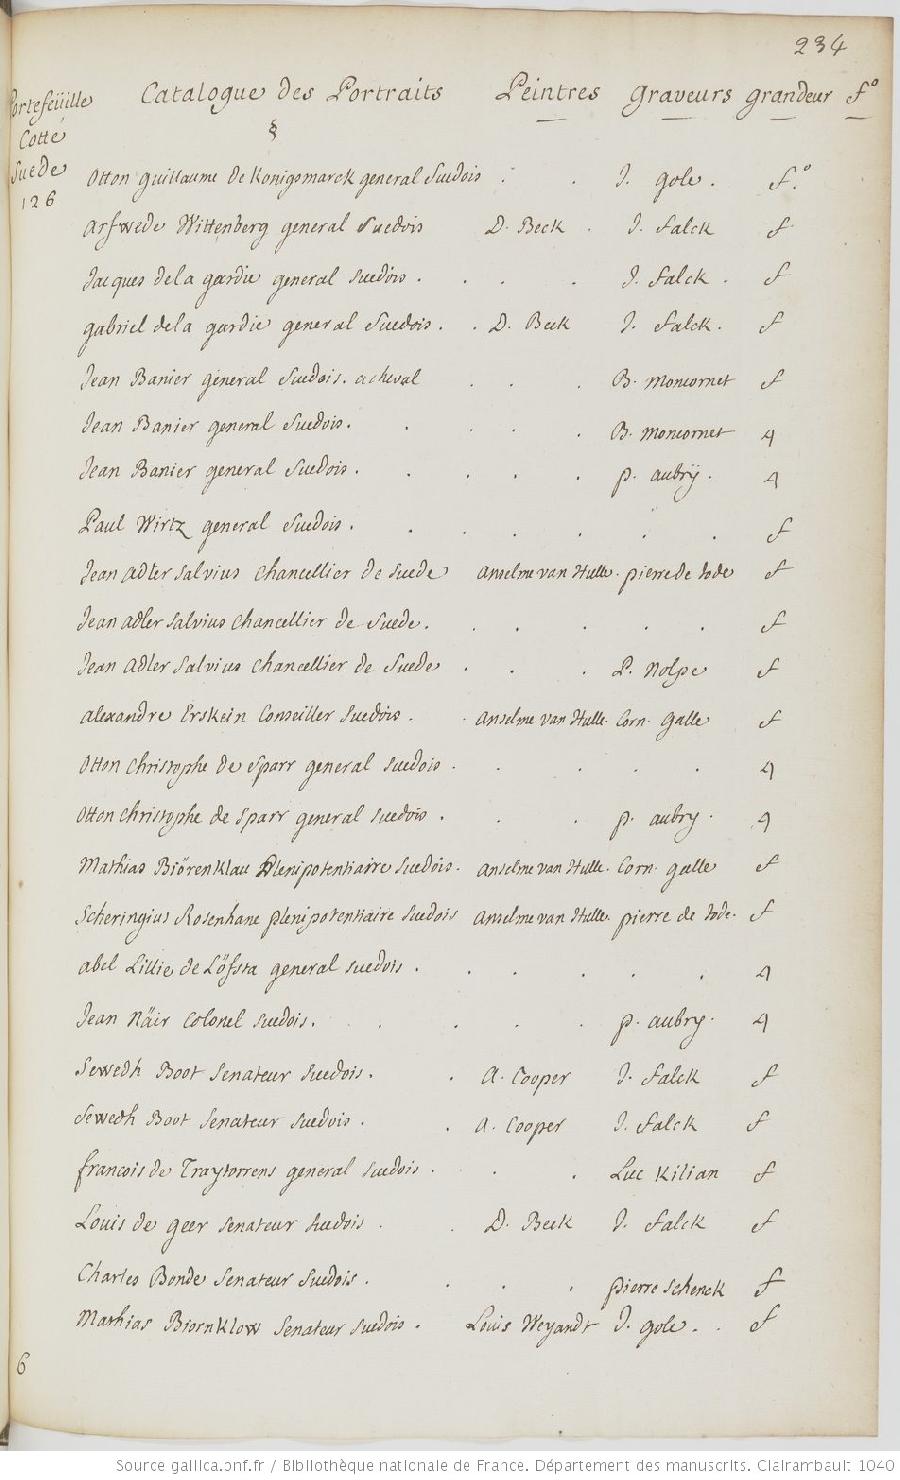 234
Portefeüille Catalogue des Portraits Peintres Graveurs Grandeur f.º
Cotté
Suede
126
Otton Guillaume de Konigsmarck general Suedois . . J. gole . f.º
Arfwede Wittenberg general Suedois D. Beck . J. Falck f
Jacques de la gardie general Suedois . . . . J. Falck . f
gabriel de la gardie general Suedois . . D. Beck J. Falck . f
Jean Banier general Suedois. a cheval . . . B. moncornet f
Jean Banier general Suedois . . . . . B. moncornet 4
Jean Banier general Suedois . . . . . p. aubrÿ . 4
Paul Wirtz general Suedois . . . . . . . f
Jean Adler Salvius Chancellier de Suede Anselme van Hulle . pierre de Jode f
Jean Adler Salvius Chancellier de Suede . . . . . . f
Jean Adler Salvius Chancellier de Suede . . . P. Nolpe f
Alexandre Erskein Conseiller Suedois . . Anselme van Hulle . Corn . galle f
Otton Christophe de Sparr general Suedois . . . . . 4
Otton Christophe de Sparr general Suedois . . . p. aubry . 4
Mathias Biörenklau Plenipotentiaire Suedois . Anselme van Hulle . Corn . galle f
Scheringius Rosenhane plenipotentiaire Suedois Anselme van Hulle . pierre de Jode . f
abel Lillie de Löfsta general Suedois . . . . . . 4
Jean Näir Colonel Suedois . . . . . p. aubry . 4
Sewedh Boot Senateur Suedois . . A. Cooper J. Falck f
Sewedh Boot Senateur Suedois . . A. Cooper J. Falck f
francois de Traytorrens general Suedois . . . Luc Kilian f
Louis de geer Senateur Suedois . . D. Beck J. Falck f
Charles Bonde Senateur Suedois . . . . pierre Schenck f
Mathias Biornklow Senateur Suedois . Louis Weyandt J. gole . . f
6
Source gallica.bnf.fr / Bibliothèque nationale de France. Département des manuscrits. Clairambault 1040